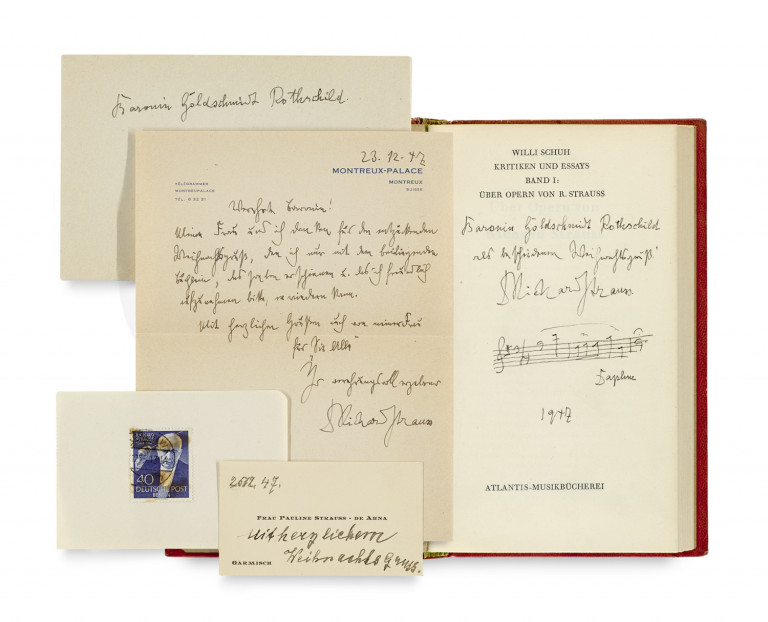 Baronin Goldschmidt Rothschild.
23.12.47
MONTREUX-PALACE
MONTREUX
SUISSE
TÉLÉGRAMMES
MONTREUXPALACE
TEL. 6 32 31
Verehrte Baronin!
Meine Frau und ich danken für den entzückenden
Weihnachtsgruß, den ich nur mit dem beiliegenden
Büchlein, das soeben erschienen u. das ich freundlich
aufzunehmen bitte, erwiedern kann.
Mit herzlichen Grüßen auch von meiner Frau
für Sie Alle
Ihr verehrungsvoll ergebener
Richard Strauss
WILLI SCHUH
KRITIKEN UND ESSAYS
BAND I:
ÜBER OPERN VON R. STRAUSS
Baronin Goldschmidt Rothschild
als bescheidenen Weihnachtsgruß!
Richard Strauss.
Daphne
1947
ATLANTIS-MUSIKBÜCHEREI
40
DEUTSCHE POST
BERLIN
47.
FRAU PAULINE STRAUSS - DE AHNA
Mit herzlichem
Weihnachts Gruss.
GARMISCH